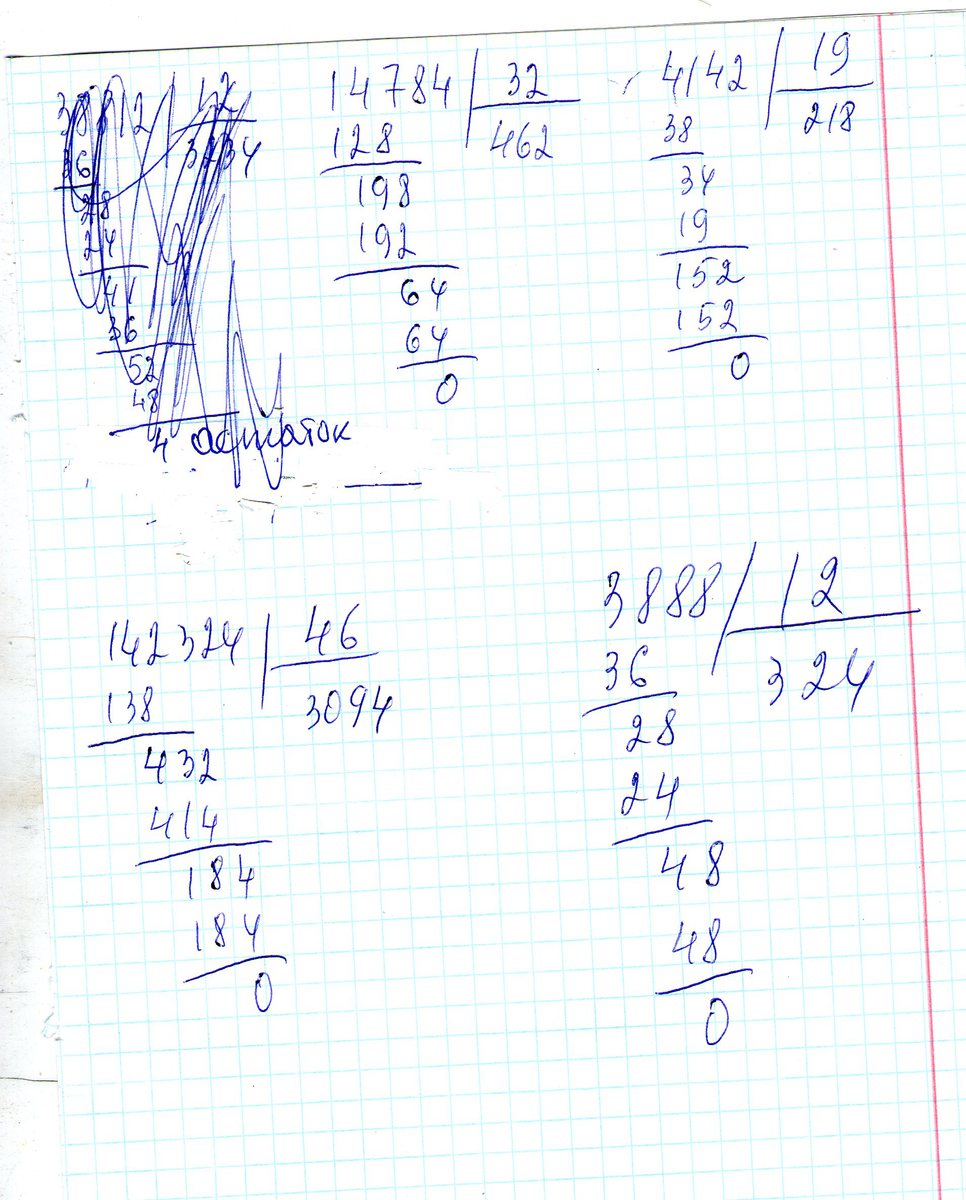 38812 | 12
36 3234
28
24
41
36
52
48
4 остаток
14784 | 32
128 462
198
192
64
64
0
4142 | 19
38 218
34
19
152
152
0
142324 | 46
138 3094
432
414
184
184
0
3888 | 12
36 324
28
24
48
48
0